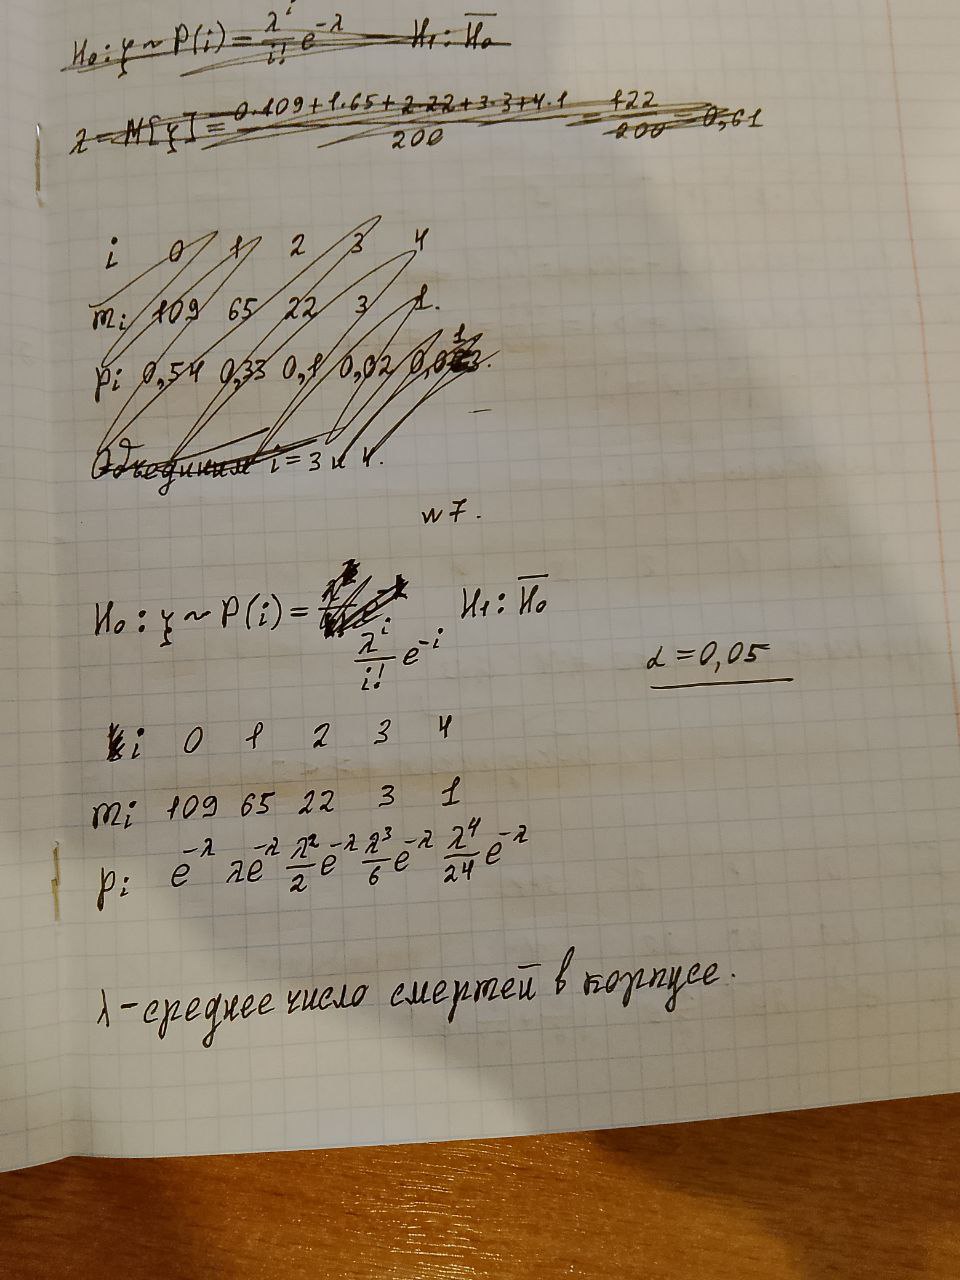 H₀: ξ ~ P(i) = λⁱ/i! e^-λ H₁: H̅₀
λ = M[ξ] = (0·109+1·65+2·22+3·3+4·1)/200 = 122/200 = 0,61
i 0 1 2 3 4
mᵢ 109 65 22 3 1.
pᵢ 0,54 0,33 0,1 0,02
Объединим i = 3 и 4.
№7.
H₀: ξ ~ P(i) = λⁱ/i! e^-i H₁: H̅₀
α = 0,05
i 0 1 2 3 4
mᵢ 109 65 22 3 1
pᵢ e^-λ λe^-λ λ²/2 e^-λ λ³/6 e^-λ λ⁴/24 e^-λ
λ - среднее число смертей в корпусе.